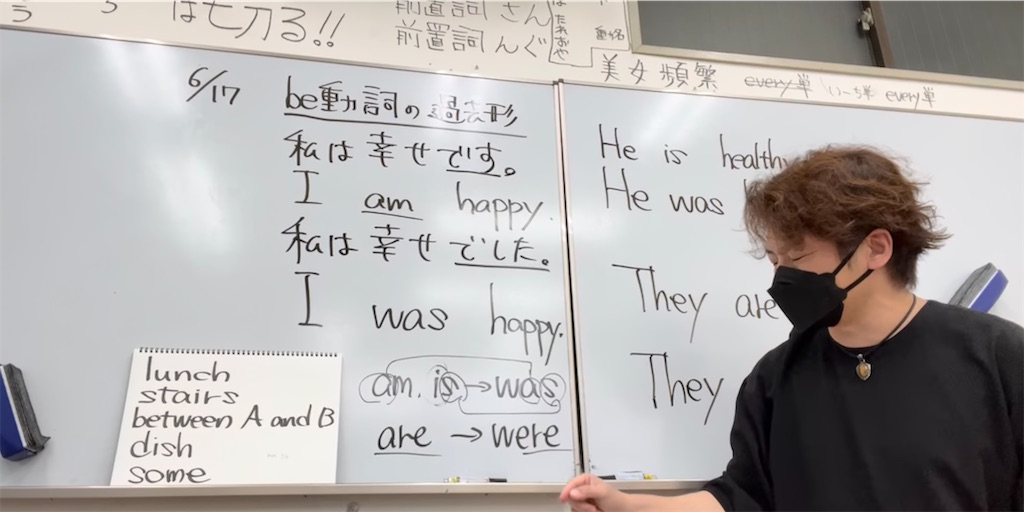 は七刀る!!
前置詞 さん
前置詞 んぐ
美女頻繁 every 単 いーち単 every 単
6/17
be動詞の過去形
私は幸せです。
I am happy.
私は幸せでした。
I was happy.
am. is → was
are → were
lunch
stairs
between A and B
dish
some
He is healthy
He was
They are
They